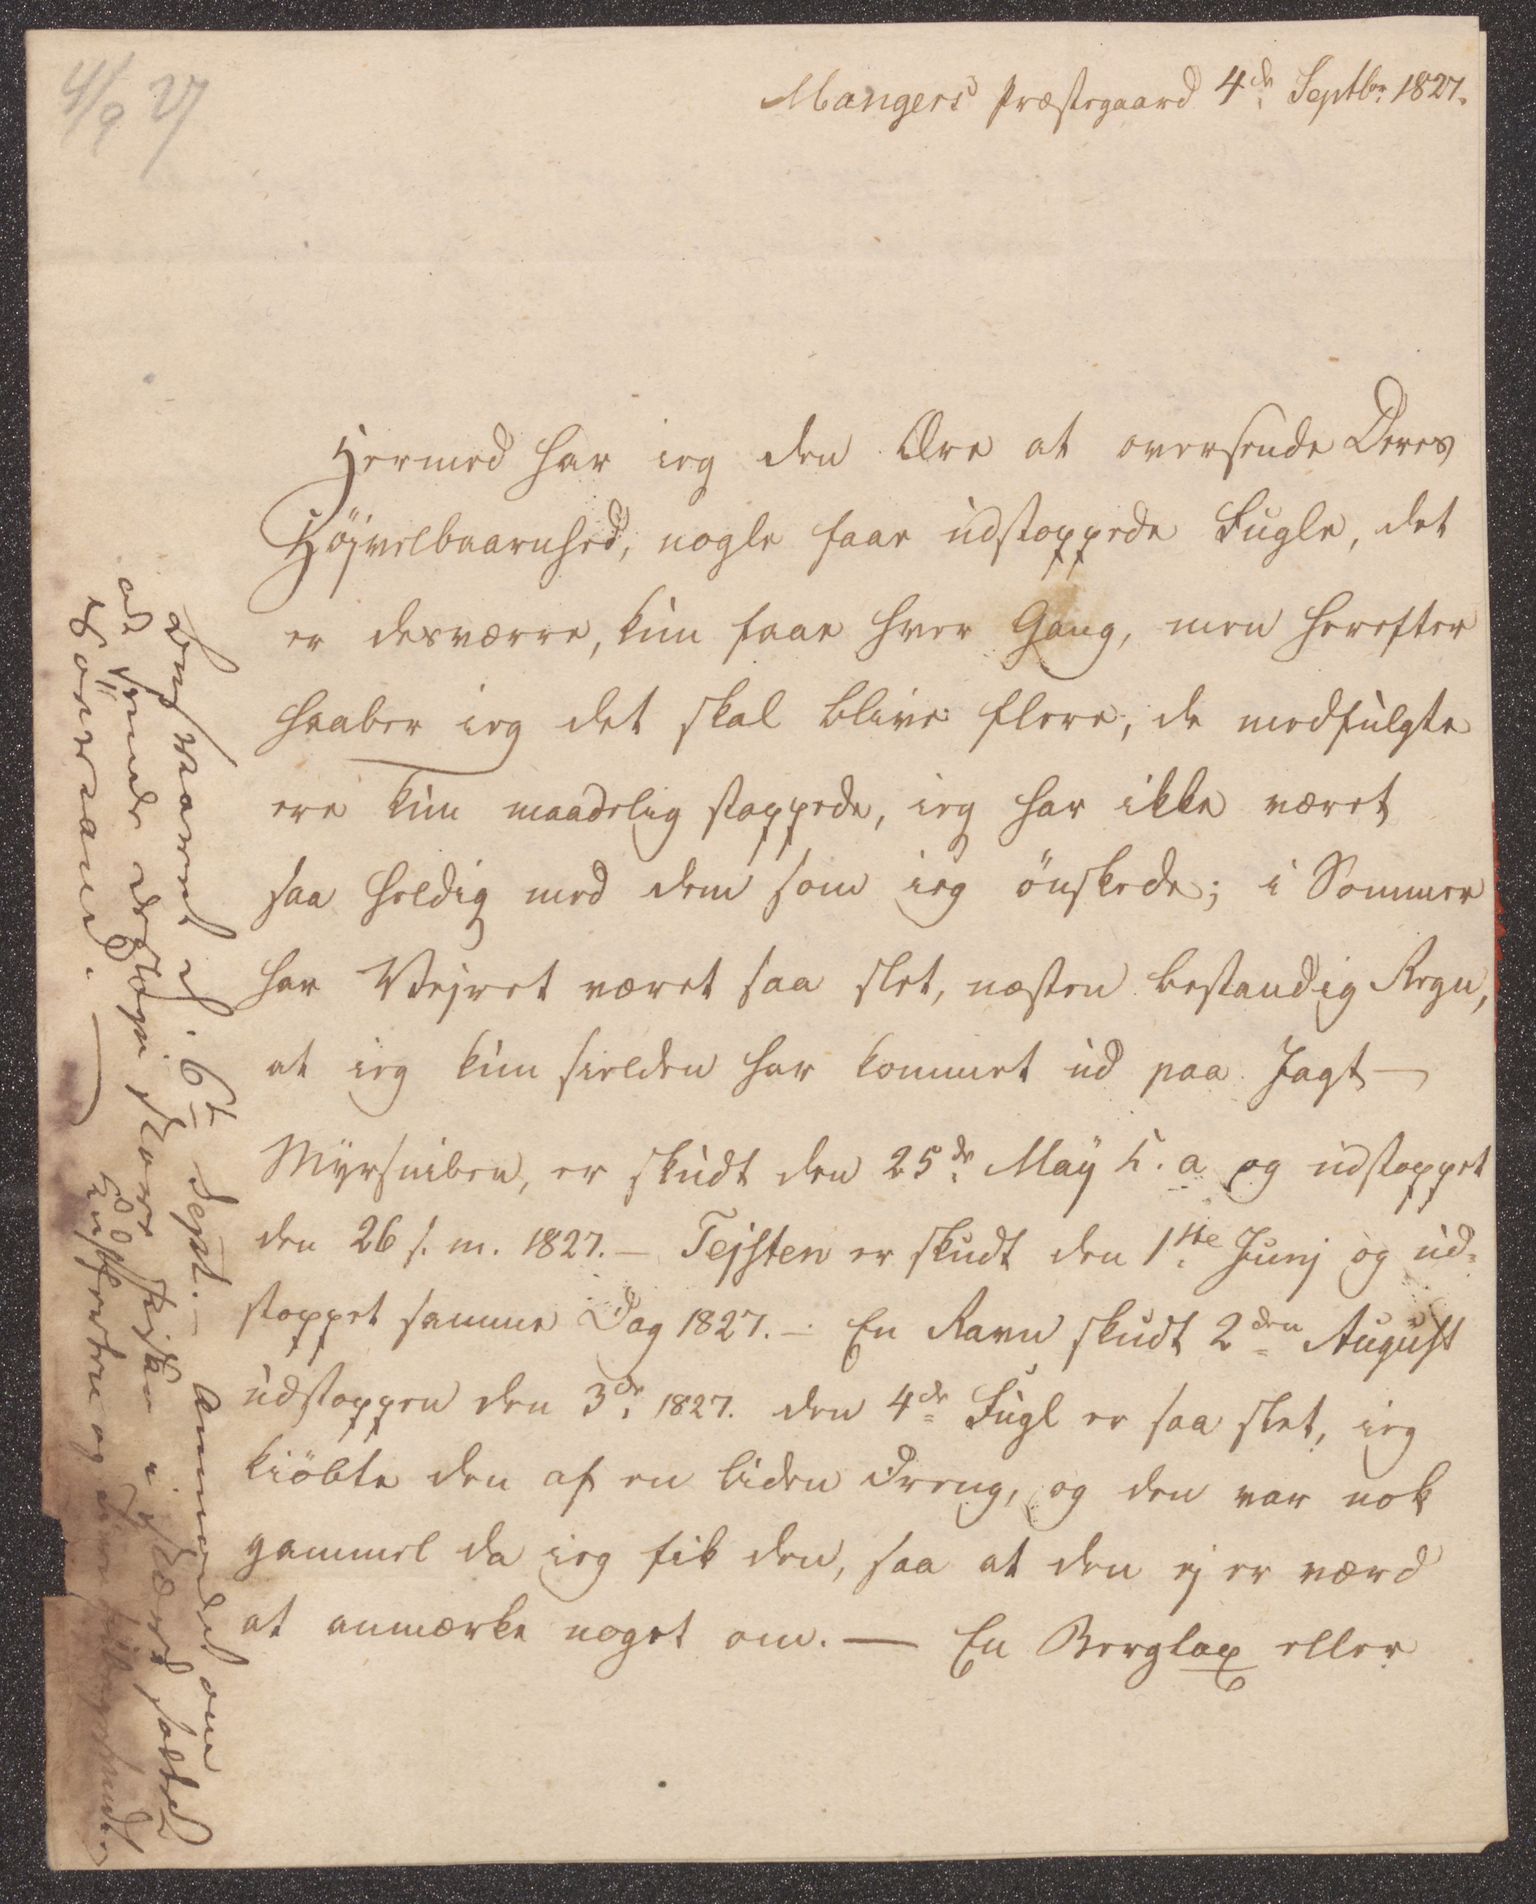 4/9 27
Mangers Præstegaard 4de Septbr 1827.
Hermed har ieg den Ære at oversende Deres
Höjvelbaarnhed, nogle faae udstoppede Fugle, det
er desværre, kun faae hver Gang, men herefter
haaber ieg det skal blive flere, de medfulgte
ere kun maadelig stoppede, ieg har ikke været
saa heldig med dem som ieg önskede; i Sommer
har Vejret været saa slet, næsten bestandig Regn,
at ieg kun sielden har kommet ud paa Jagt —
Myrsniben, er skudt den 25de Maÿ h. a og udstoppet
den 26 s. m. 1827. — Tejsten er skudt den 1ste Junj og ud-
stoppet samme Dag 1827. — En Ravn skudt 2den August
udstoppen den 3de 1827. den 4de Fugl er saa slet, ieg
kiöbte den af en liden Dreng, og den var nok
gammel da ieg fik den, saa at den ej er værd
at anmærke noget om. — En Berglax eller
Besvaret d. 6t Sept. — Anmodet om
at sende